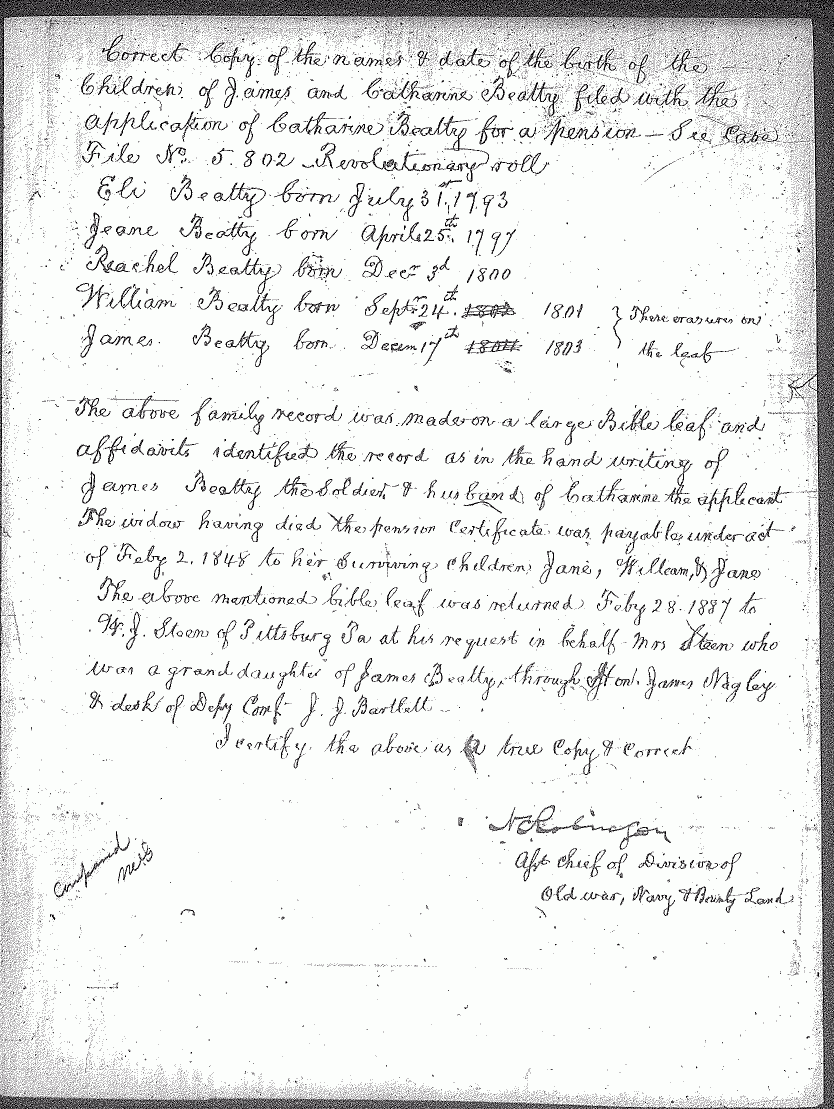 Correct Copy of the names & date of the birth of the —
Children of James and Catharine Beatty filed with the
application of Catharine Beatty for a pension — See Case
File No. 5.802 Revolutionary roll
Eli Beatty born July 31st, 1793
Jeane Beatty born April 25th, 1797
Reachel Beatty born Decr 3d 1800
William Beatty born Septr 24th. 1801
James Beatty born Decem 17th 1803
} These erasures on
the leaf
The above family record was made on a large Bible leaf and
affidavits identified the record as in the hand writing of
James Beatty the Soldier & husband of Catharine the applicant
The widow having died the pension Certificate was payable under act
of Feby 2. 1848 to her Surviving children Jane, William, & Jane
The above mentioned bible leaf was returned Feby 28. 1887 to
W. J. Steen of Pittsburg Pa at his request in behalf Mrs Steen who
was a grand daughter of James Beatty, through Hon. James Nagley
& desk of Depy Comr J. J. Bartlett —
I certify the above as a true Copy & Correct
N C Robinson
Asst chief of Division of
Old war, Navy & Bounty Land
Compared